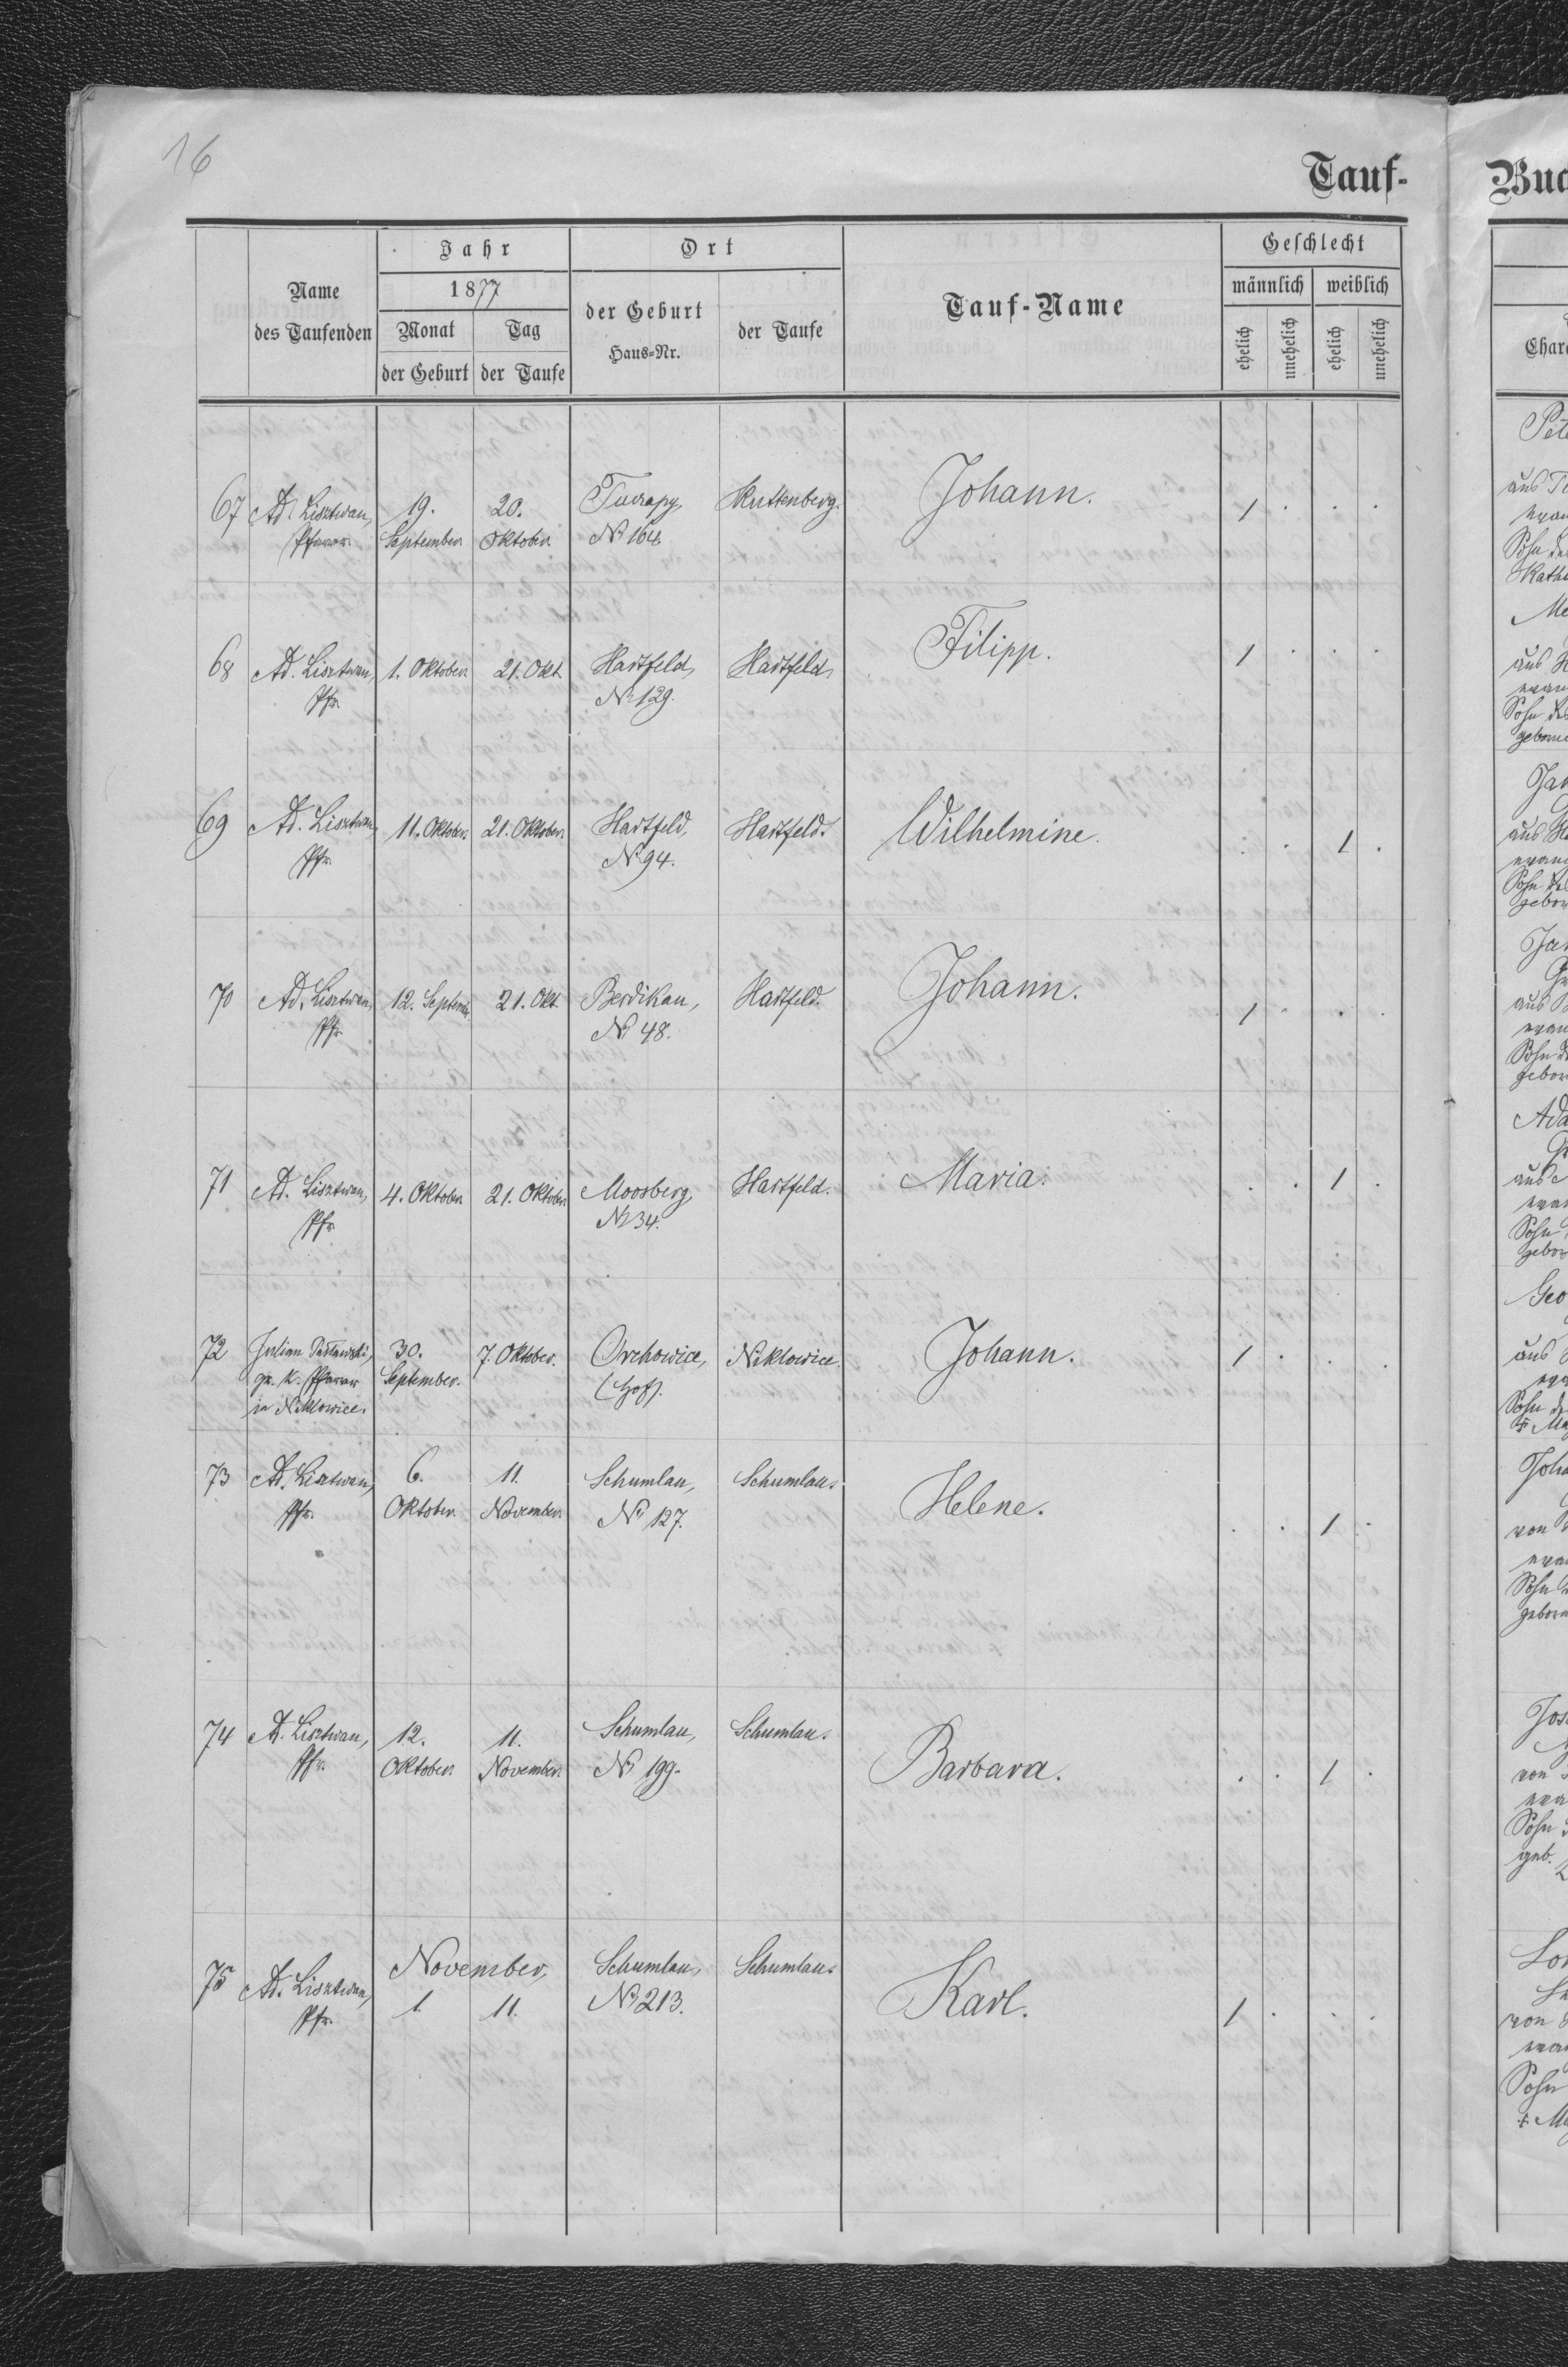 16
Tauf-
Jahr
Ort
Geschlecht
Name
des Taufenden
1877
der Geburt
Haus-Nr.
der Taufe
Tauf-Name
männlich
weiblich
Monat
Tag
der Geburt
der Taufe
ehelich
unehelich
ehelich
unehelich
67 Ad. Lisztwan, 19. 20. Turapy, Kuttenberg. Johann. 1 . . .
Pfarrer September Oktober № 164
68 Ad. Lisztwan, 1. Oktober 21. Okt. Hartfeld, Hartfeld, Filipp. 1 . . .
Pfr. № 129.
69 Ad. Lisztwan, 11. Oktober. 21. Oktober. Hartfeld, Hartfeld. Wilhelmine. . . 1 .
Pfr. № 94.
70 Ad. Lisztwan, 12. September. 21. Okt. Berdikau, Hartfeld. Johann. 1 . . .
Pfr. № 48.
71 Ad. Lisztwan, 4. Oktober. 21. Oktober. Moosberg, Hartfeld. Maria. . . 1 .
Pfr. № 34.
72 Julian 30. 7. Oktober. Orchowice, Niklowice. Johann. 1 . . .
gr. k. Pfarrer September. (Hof).
in Niklowice.
73 Ad. Lisztwan, 6. 11. Schumlau, Schumlau. Helene. . . 1 .
Pfr. Oktober. November. № 127.
74 A. Lisztwan, 12. 11. Schumlau, Schumlau. Barbara. . . 1 .
Pfr. Oktober. November. № 199.
75 Ad. Lisztwan, November, Schumlau, Schumlau. Karl. 1 . . .
Pfr. 1. 11. № 213.
Buc
Char
Pete
aus
evan
Sohn des
Kath
Me
aus H
evan
Sohn des
geborne
Jak
aus Ha
evan
Sohn des
gebor
Jak
Gr
aus
evan
Sohn d
gebor
Ada
aus
evan
Sohn
gebor
Geo
aus
Sohn d
Ma
Joha
von
evan
Sohn
gebor
Jos
von
evan
Sohn
geb.
von
evan
Sohn